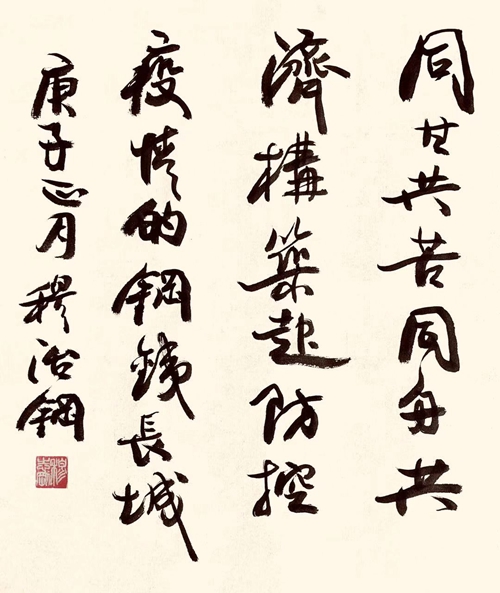 同甘共苦同舟共
濟構築起防控
疫情的鋼銕長城
庚子正月穆治鋼